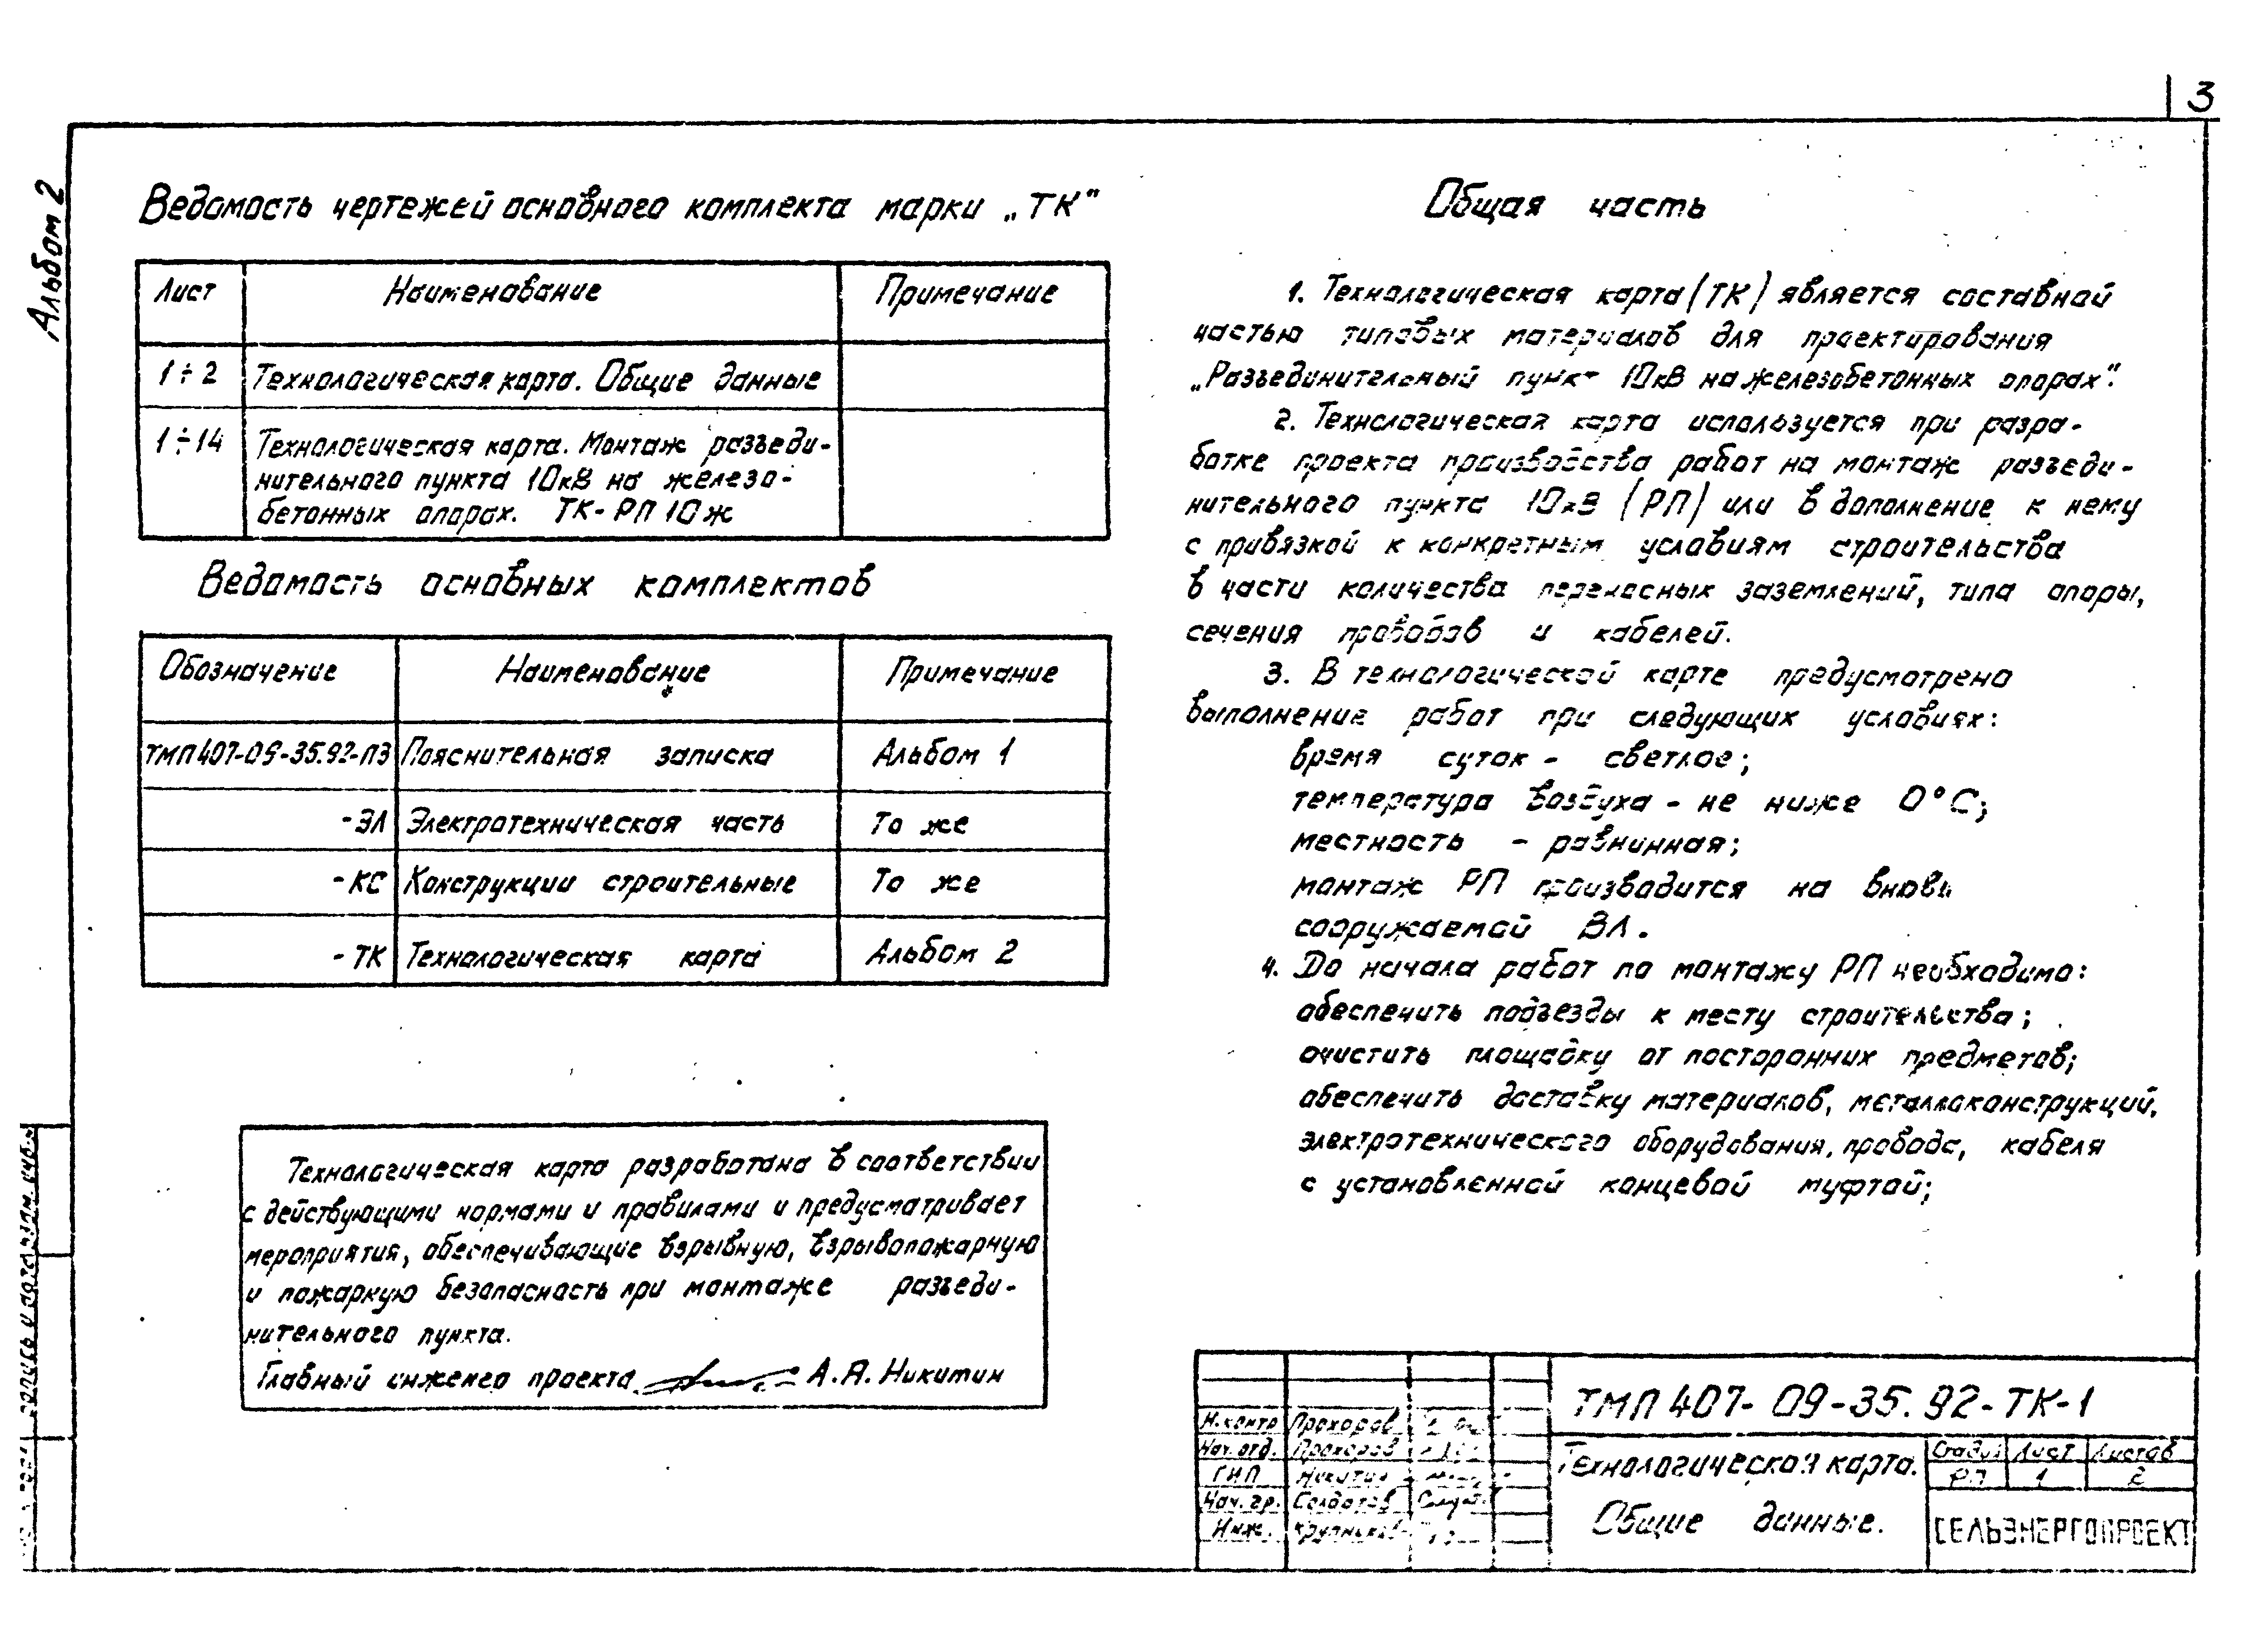 3
Альбом 2
Ведомость чертежей основного комплекта марки „ТК"
Лист Наименование Примечание
1÷2 Технологическая карта. Общие данные
1÷14 Технологическая карта. Монтаж разъеди-
нительного пункта 10кВ на железо-
бетонных опорах. ТК-РП10ж
Ведомость основных комплектов
Обозначение Наименование Примечание
ТМП407-09-35.92-ПЗ Пояснительная записка Альбом 1
-ЭЛ Электротехническая часть То же
-КС Конструкции строительные То же
-ТК Технологическая карта Альбом 2
Технологическая карта разработана в соответствии
с действующими нормами и правилами и предусматривает
мероприятия, обеспечивающие взрывную, взрывопожарную
и пожарную безопасность при монтаже разъеди-
нительного пункта.
Главный инженер проекта А.А.Никитин
Общая часть
1. Технологическая карта (ТК) является составной
частью типовых материалов для проектирования
„Разъединительный пункт 10кВ на железобетонных опорах".
2. Технологическая карта используется при разра-
ботке проекта производства работ на монтаж разъеди-
нительного пункта 10кВ (РП) или в дополнение к нему
с привязкой к конкретным условиям строительства
в части количества переносных заземлений, типа опоры,
сечения проводов и кабелей.
3. В технологической карте предусмотрено
выполнение работ при следующих условиях:
время суток - светлое;
температура воздуха - не ниже 0°С;
местность - равнинная;
монтаж РП производится на вновь
сооружаемой ВЛ.
4. До начала работ по монтажу РП необходимо:
обеспечить подъезды к месту строительства;
очистить площадку от посторонних предметов;
обеспечить доставку материалов, металлоконструкций,
электротехнического оборудования, провода, кабеля
с установленной концевой муфтой;
ТМП 407-09-35.92-ТК-1
Н.контр Прохоров
Нач.отд. Прохоров
ГИП Никитин
Нач.гр. Солдатов
Инж.
Технологическая карта.
Общие данные.
Стадия Лист Листов
РП 1 2
СЕЛЬЭНЕРГОПРОЕКТ